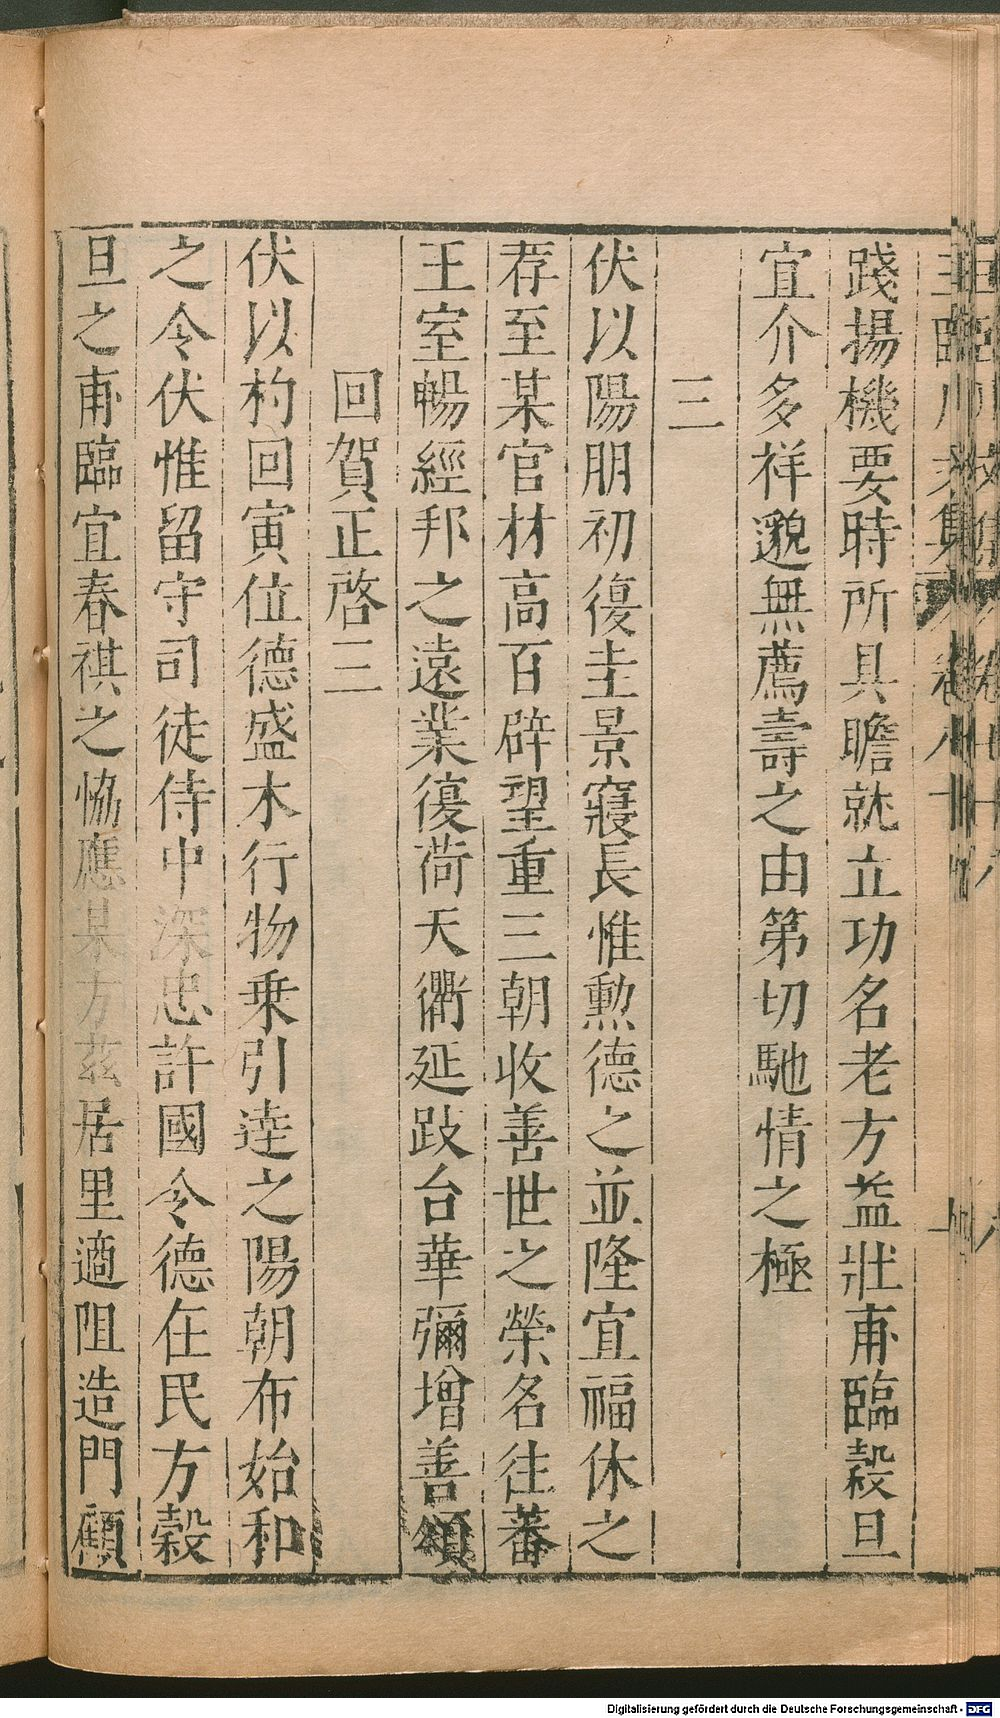 踐揚機要時所具瞻就立功名老方益壯甫臨穀旦
宜介多祥邈無薦壽之由第切馳情之極
三
伏以陽朋初復圭景寖長惟勲德之並隆宜福休之
荐至某官材高百辟望重三朝收善世之榮名徃蕃
王室暢經邦之遠業復荷天衢延跂台華彌增善頌
回賀正啓三
伏以杓回寅位德盛木行物乗引逹之陽朝布始和
之令伏惟留守司徒侍中深忠許國令德在民方穀
旦之甫臨宜春祺之恊應某方兹居里適阻造門顧
Digitalisierung gefördert durch die Deutsche Forschungsgemeinschaft - DFG